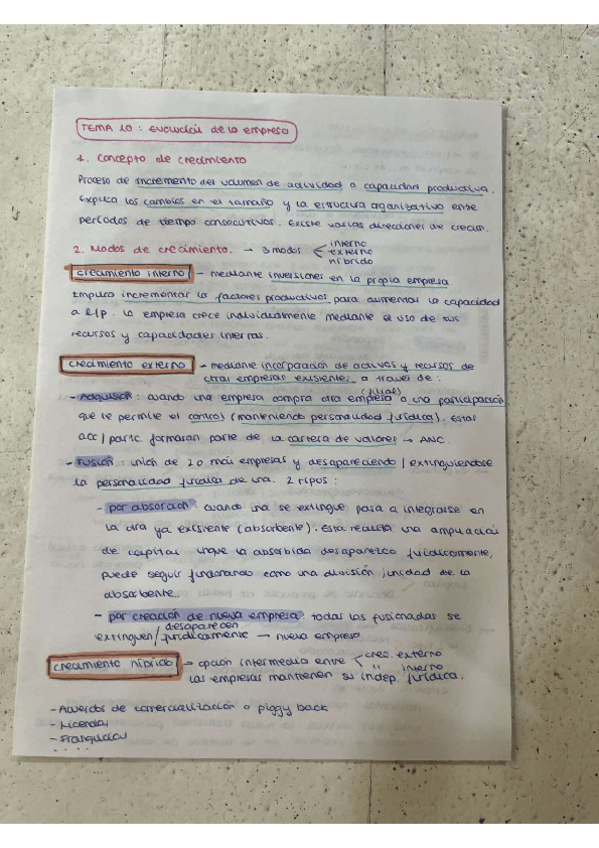 TEMA 10 : EVOLUCIÓN DE LA EMPRESA
1. Concepto de crecimiento
Proceso de incremento del volumen de actividad o capacidad productiva.
Explica los cambios en el tamaño y la estructura organizativa entre
períodos de tiempo consecutivos. Existe varias direcciones de crecim.
2. Modos de crecimiento. → 3 modos
interno
externo
híbrido
crecimiento interno - mediante inversiones en la propia empresa
Implica incrementar los factores productivos para aumentar la capacidad
a l/p. La empresa crece individualmente mediante el uso de sus
recursos y capacidades internas.
crecimiento externo - mediante incorporación de activos y recursos de
otras empresas existentes, a través de :
- Adquisición : cuando una empresa compra otra empresa o una participación
(filial)
que le permite el control (manteniendo personalidad jurídica). Estas
acc / partic. formaran parte de la cartera de valores → ANC.
- Fusión : unión de 2 o más empresas y desapareciendo / extinguiéndose
la personalidad jurídica de una. 2 tipos :
- por absorción : cuando una se extingue pasa a integrarse en
la otra ya existente (absorbente). Esta realiza una ampliación
de capital. Unque la absorbida desaparezca jurídicamente,
puede seguir funcionando como una división / unidad de la
absorbente.
- por creación de nueva empresa todas las fusionadas se
desaparecen
extinguen / jurídicamente → nueva empresa
crecimiento híbrido → opción intermedia entre
crec. externo
" interno
las empresas mantienen su indep. jurídica.
- Acuerdos de comercialización o piggy back
- Licencias
- Franquicias
.....